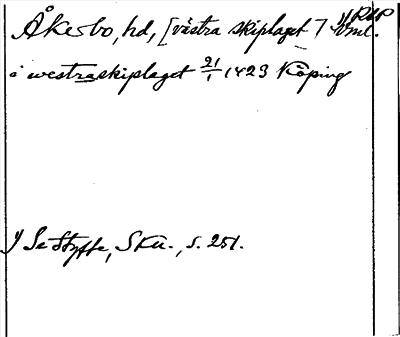 Åkerbo, hd, [västra skiplaget] Vml.
i westraskiplaget 21/1 1423 Köping
1) Se Styffe, Sku., s. 251.